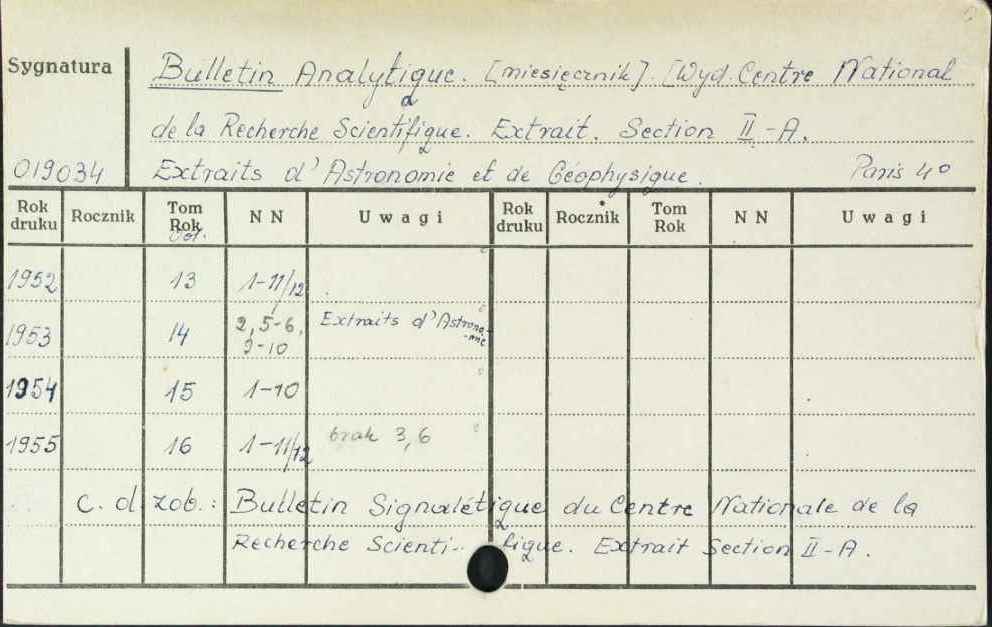 Sygnatura
Bulletin Analytique. [miesięcznik]. [Wyd. Centre National
de la Recherche Scientifique. Extrait. Section II-A.
019034 Extraits d'Astronomie et de Géophysique. Paris 4°
Rok druku Rocznik Tom Rok Vol. NN Uwagi Rok druku Rocznik Tom Rok NN Uwagi
1952 13 1-11/12
1953 14 2, 5-6, 9-10 Extraits d'Astrono-mie
1954 15 1-10
1955 16 1-11/12 brak 3,6
c. d. zob.: Bulletin Signalétique du Centre Nationale de la
Recherche Scienti-fique. Extrait Section II-A.